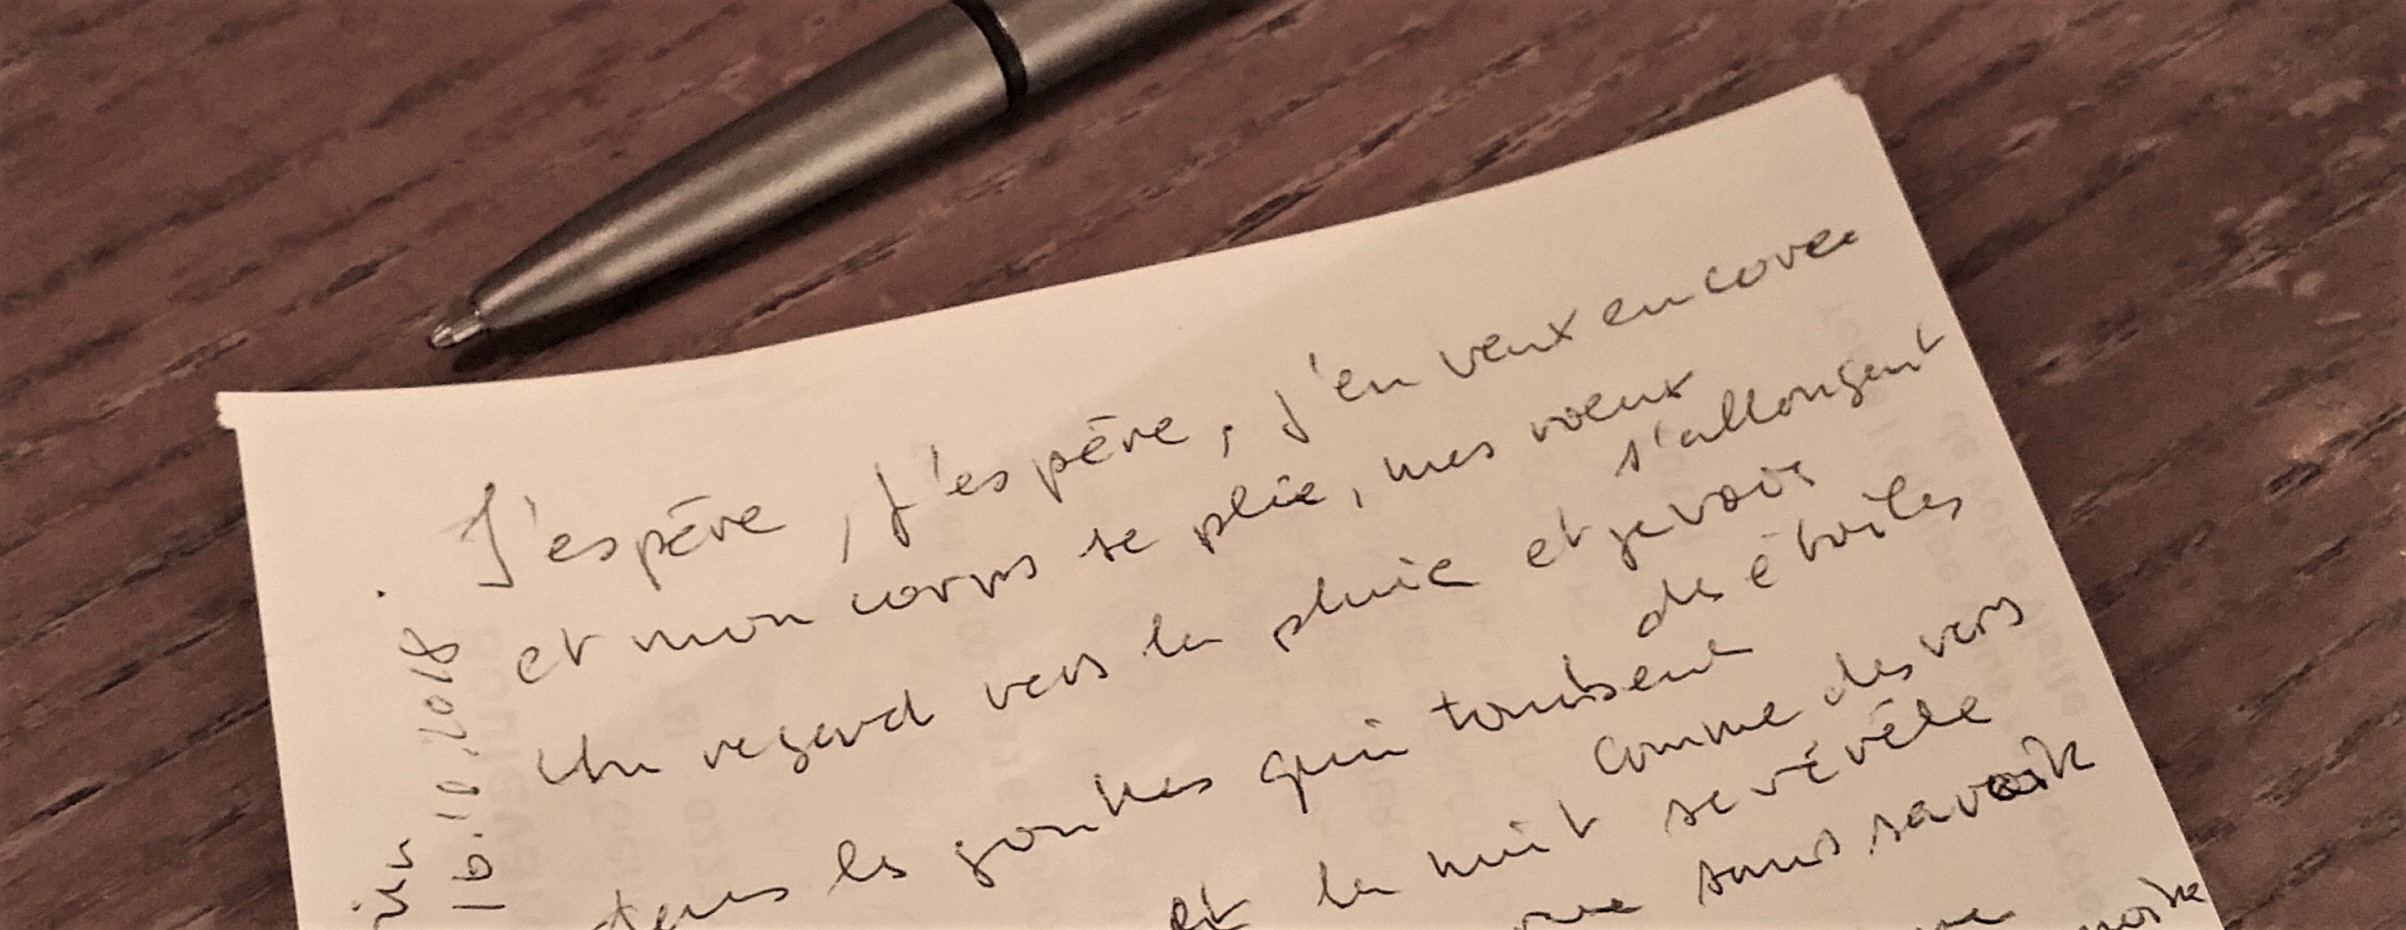 J'espère, j'espère, j'en veux encore
et mon corps se plie, mes vœux
s'allongent
Un regard vers la pluie et je vois
des étoiles
dans les gouttes qui tombent
comme des vers
et la nuit se révèle
sans savoir
noire
16.10.2018